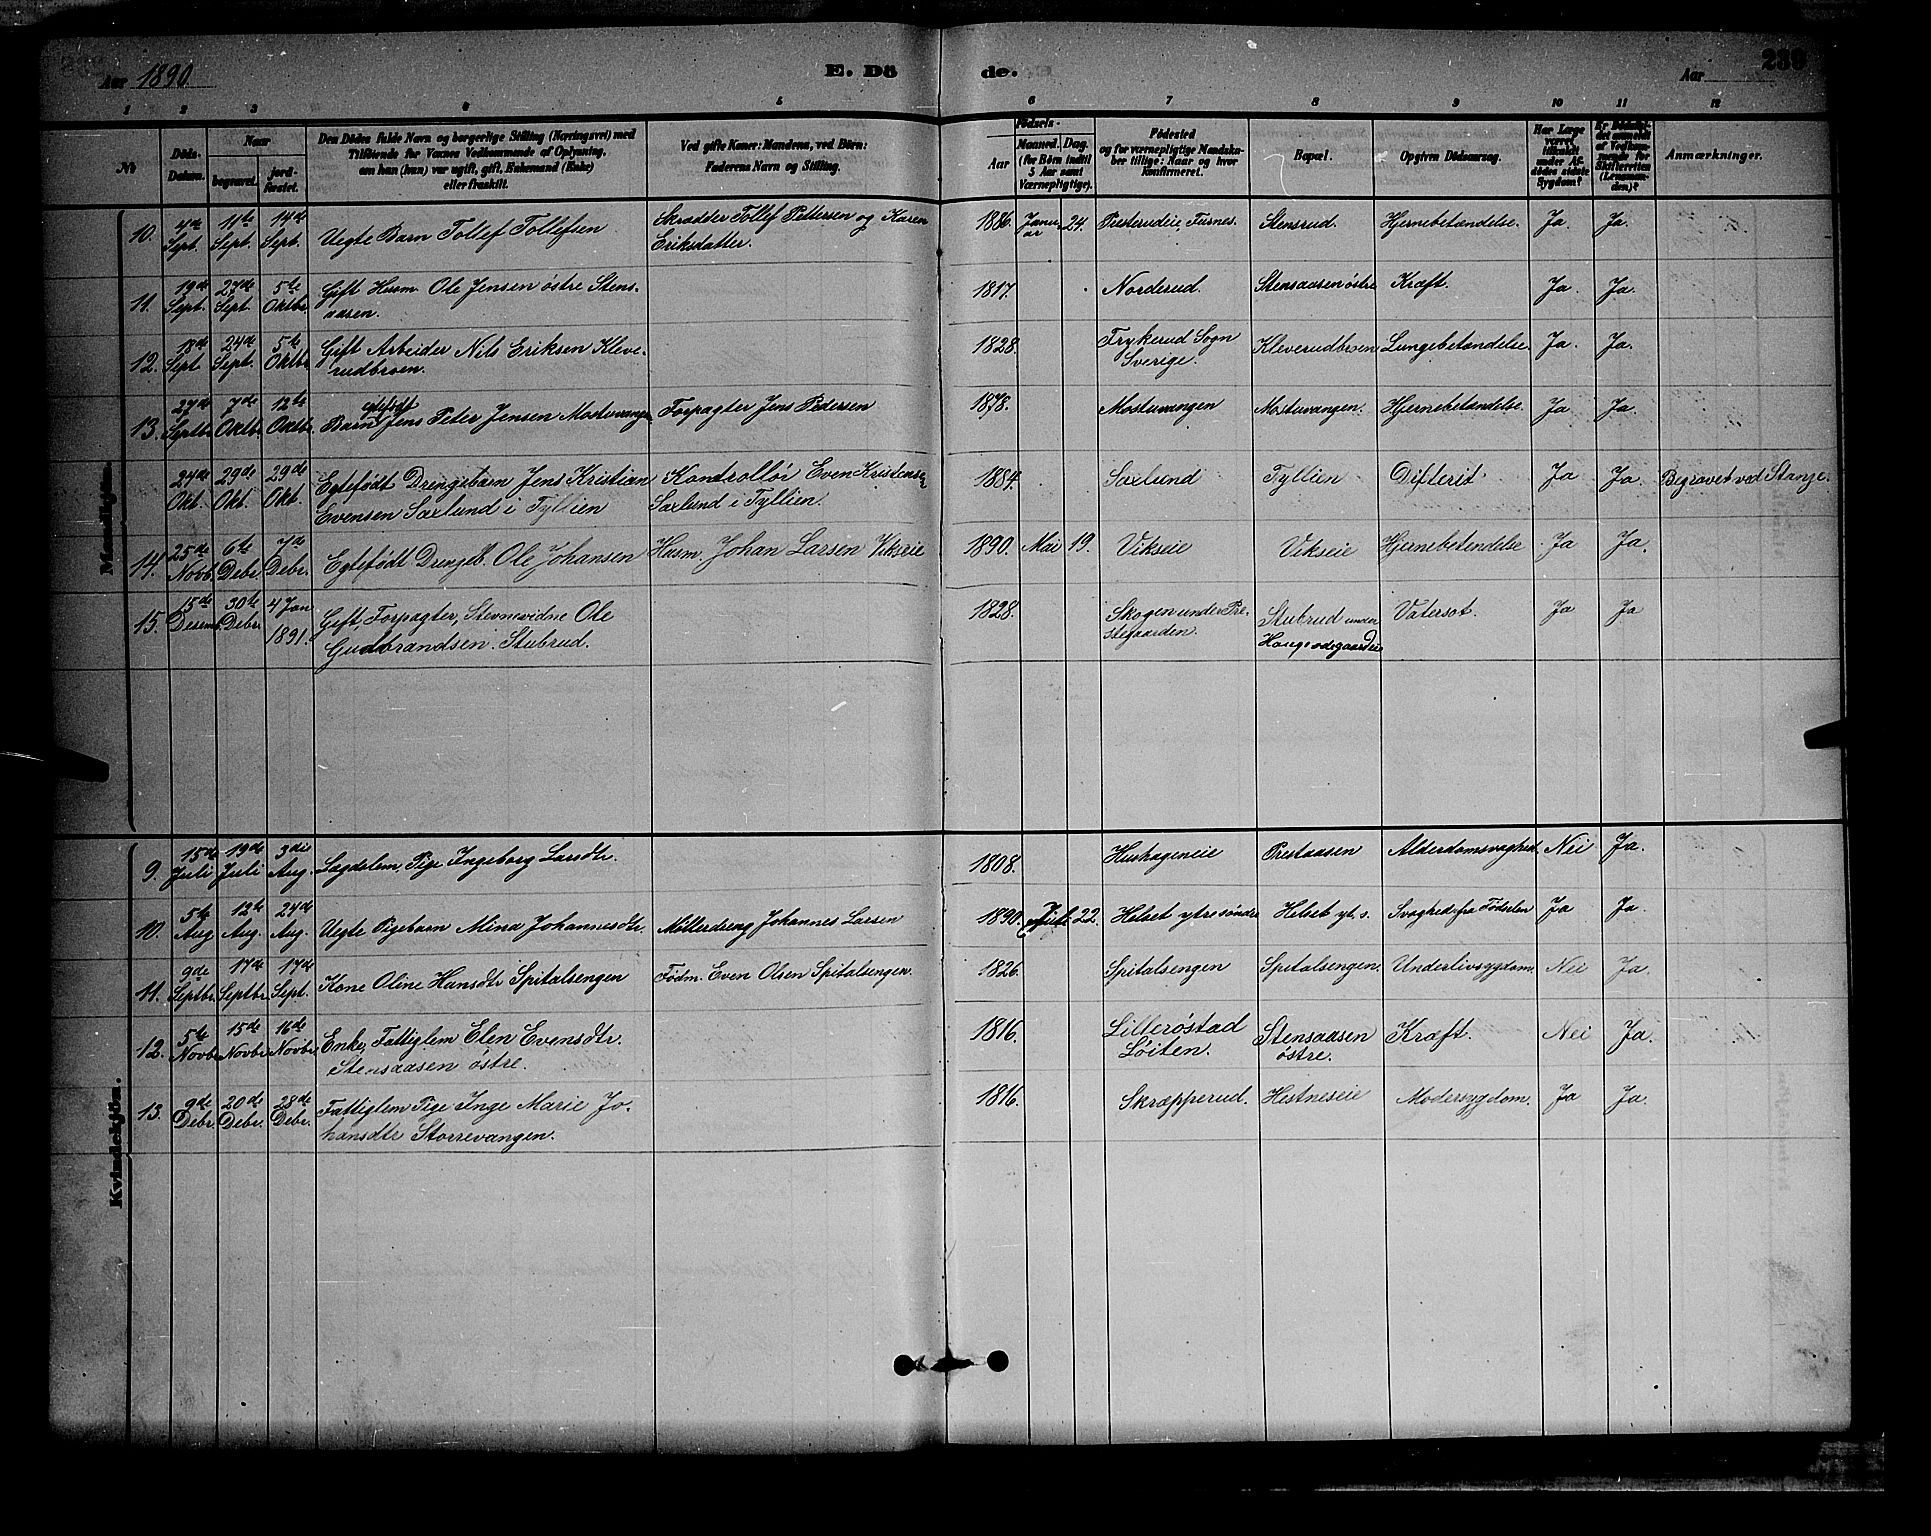 Aar 1890
E. Dö
de.
Aar
239
1 2 3 4 5 6 7 8 9 10 11 12
№
Döds-Datum.
Naar
begravet.
jord-fæstet.
Den Dödes fulde Navn og borgerlige Stilling (Næringsvei) med
Tilföiende for Voxnes Vedkommende af Oplysning,
om han (hun) var ugift, gift, Enkemand (Enke)
eller fraskilt.
Ved gifte Koner: Mandens, ved Börn:
Faderens Navn og Stilling.
Födsels-
Aar
Maaned. Dag.
(for Börn indtil
5 Aar samt
Værnepligtige).
Födested
og for værnepligtige Mandska-
ber tillige: Naar og hvor
konfirmeret.
Bopæl.
Opgiven Dödsaarsag.
Har Læge
været
tilkaldt
under Af-
dödes sidste
Sygdom?
Er Dödsfal-
det anmeldt
af Vedkom-
mende for
Skifteretten
(Lensman-
den)?
Anmærkninger.
Mandkjön.
10. 4de Sept. 11te Sept. 14de Sept. Uegte Barn Tollef Tollefsen Skrædder Tollef Pettersen og Karen
Eriksdatter. 1886. Janu-
ar 24. Presterudeie, Furnes. Stensrud. Hjernebetændelse. Ja. Ja.
11. 19de Sept. 27de Sept 5te Oktbr. Gift Husm. Ole Jensen østre Stens-
aasen. 1817. Norderud. Stensaasen østre Kræft. Ja. Ja.
12. 18de Sept 24de Sept. 5te Oktbr. Gift Arbeider Nils Eriksen Kleve-
rudbroen. 1828. Frykerud Sogn
Sverige. Kleverudbroen Lungebetændelse. Ja. Ja.
13. 27de Septbr. 7de Oktbr. 12te Oktbr. Barn egtefødt Jens Peter Jensen Mostuvangen Forpagter Jens Pedersen 1878. Mostuvangen Mostuvangen. Hjernebetændelse. Ja Ja.
24de Okt. 29de Okt. 29de Okt. Egtefødt Drengebarn Jens Kristian
Evensen Saxlund i Tyllien Kontrollør Even Kristensen
Saxlund i Tyllien. 1884. Saxlund Tyllien Difterit Ja Ja. Begravet ved Stange.
14. 25de Novb. 6te Debr. 7de Debr. Egtefødt Drengeb. Ole Johansen Husm. Johan Larsen Vikseie 1890. Mai 19. Vikseie Vikseie Hjernebetendelse Ja Ja.
15. 15de Desem. 30te Debr. 4 Jan
1891. Gift, Forpagter, Stevnevidne Ole
Gudbrandsen. Stubrud. 1828. Skogen under Pre-
stegaarden. Stubrud under
Vatersot. Ja Ja
Kvindekjön.
9. 15de Juli 19de Juli 3die Aug. Lægdslem, Pige Ingeborg Larsdtr. 1808. Hushageneie Prestaasen Alderdomsvaghed. Nei Ja.
10. 5te Aug 12te Aug. 24de Aug. Uegte Pigebarn Mina Johannesdtr. Møllerdreng Johannes Larsen 1890. Juli 22. Helset ytre søndre Helset yt. s. Svaghed fra Fødselen Ja Ja.
11. 9de Septbr. 17de Septbr. 17de Sept. Kone Oline Hansdtr Spitalsengen Fødm. Even Olsen Spitalsengen. 1826. Spitalsengen Spitalsengen. Underlivssygdom. Nei Ja.
12. 5te Novbr. 15de Novbr. 16de Novbr. Enke, Fattiglem Elen Evensdtr.
Stensaasen østre. 1816. Lillerøstad
Løiten. Stensaasen
østre. Kræft. Nei Ja.
13. 9de Debr. 20de Debr. 28de Debr. Fattiglem Pige Inge Marie Jo-
hansdtr Storrevangen. 1816. Skræpperud. Hestneseie Modersygdom. Ja Ja.